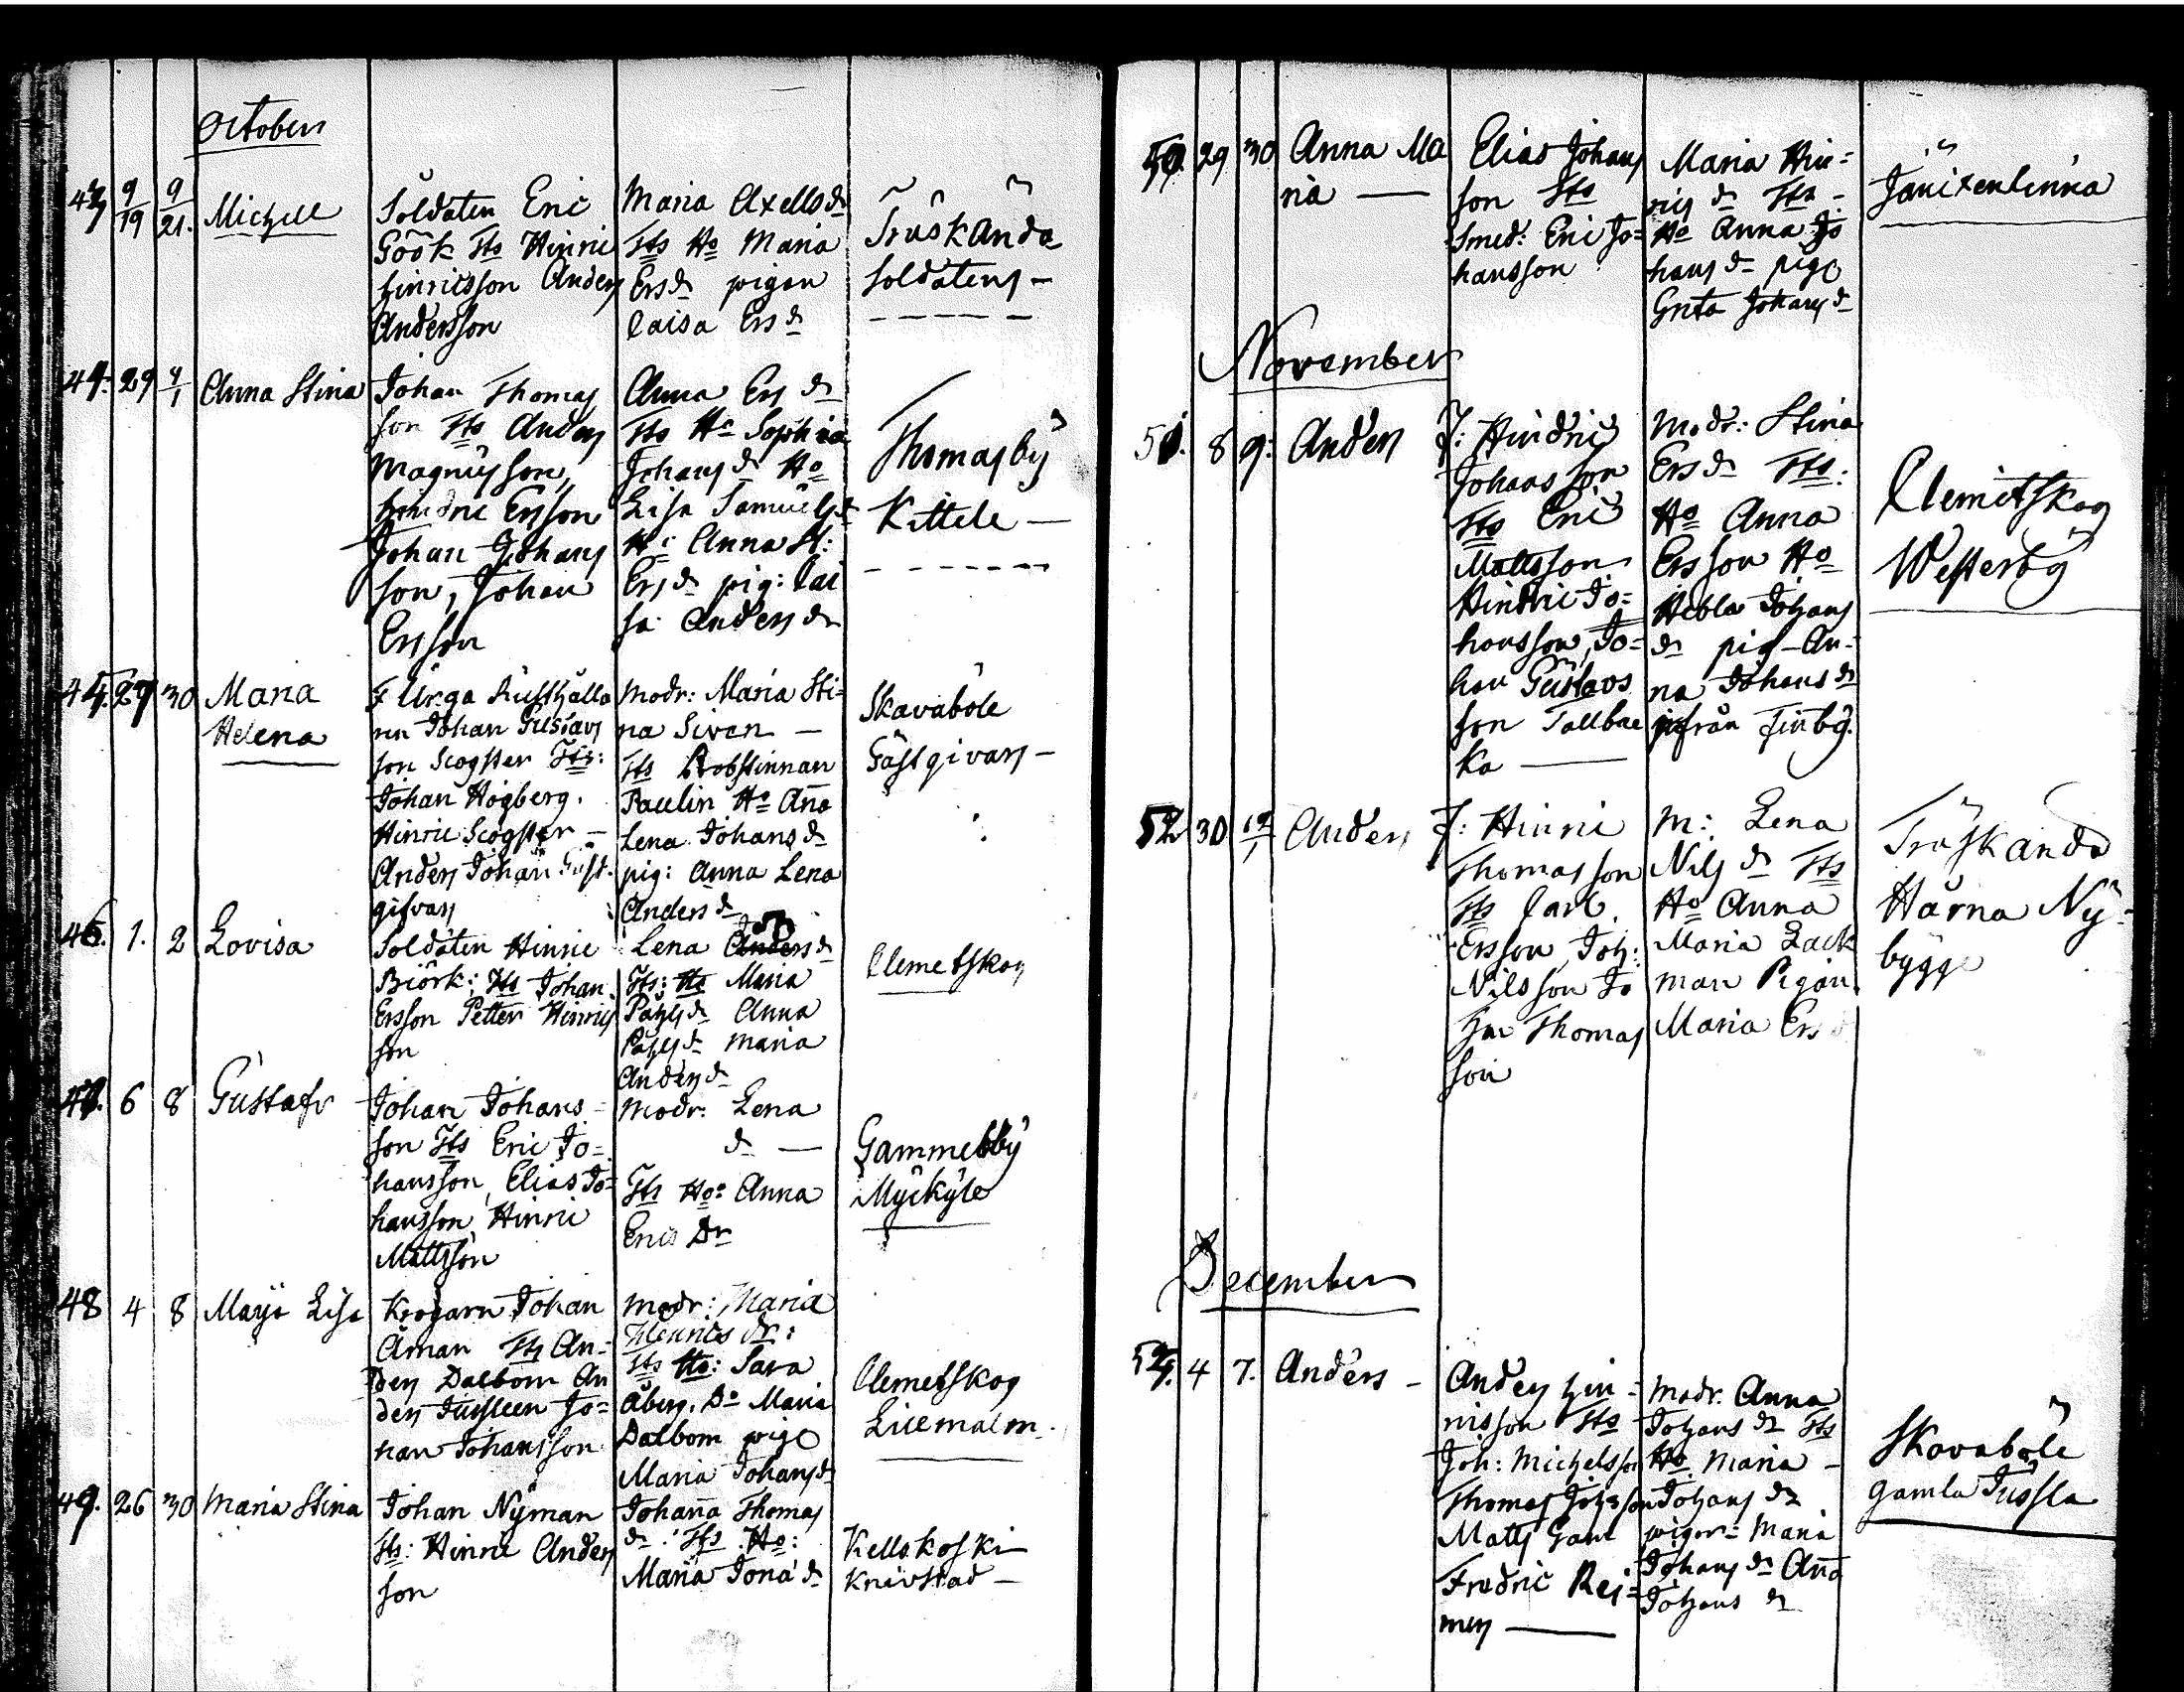 October
43 9/19 9/21. Michell
Soldaten Eric
Göök Tts Hinric
Hinricsson Anders
Andersson
Maria Axells dr
Tts Ho Maria
Ersdr pigan
Caisa Ers dr
Träskända
Soldatens —
44. 29 4/1 Anna Stina
Johan Thomas
son Tts Anders
Magnusson,
Hindric Ersson
Johan Johans
son, Johan
Ersson
Anna Ers dr
Tts Ho Sophia
Johans dr Ho
Lisa Samuels dr
Ho Anna St:
Ers dr pig: Cai
sa Anders dr
Thomasby
Kittele —
45. 27 30 Maria
Helena
F Unga Rusthålla
ren Johan Gustavs
son Scogster Tts:
Johan Högberg.
Hinric Scogster —
Anders Johan Gäst-
gifvars
Modr: Maria Sti-
na Siven —
Tts Probstinnan
Paulin Ho Aña
Lena Johans dr
pig: Anna Lena
Anders dr
Skavaböle
Gästgivars —
46. 1. 2 Lovisa
Soldaten Hinric
Biörk: Tts Johan
Ersson Petter Hinrics
son
Lena Anders dr
Tts: Ho Maria
dr Anna
dr Maria
Anders dr
Clemetskog
47. 6 8 Gustafv
Johan Johans-
son Tts Eric Jo=
hansson, Elias Jo=
hansson Hinric
Mattsson
Modr: Lena
dr —
Tts Ho: Anna
Erics Dr
Gammelby
Myckyle
48 4 8 Maja Lisa
Krögarn Johan
Åman Tts An-
ders Dalbom An
ders Jo=
han Johansson
modr: Maria
Henrics dr:
Tts Ho: Sara
Åberg, Do Maria
Dalbom pig
Maria Johans dr
Clemetskog
Lillmalm
49. 26 30 Maria Stina
Johan Nyman
Tts: Hinric Anders
son
Johanna Thomas
dr: Tts Ho:
Maria Jona dr
Kellokoski
Knivstad —
50. 29 30 Anna Ma
ria —
Elias Johans
son Tts
Smed: Eric Jo=
hansson
Maria Hin=
rics dr Tts —
Ho Anna Jo
hans dr pig
Greta Johans dr
Jänixenlinna
November
51. 8 9: Anders
F: Hindric
Johansson
Tts Eric
Mattsson
Hindric Jo=
hansson, Jo=
han Gustavs
son Tallbac
ka —
Modr: Stina
Ersdr Tts:
Ho Anna
Ersson Ho
Hebla Johans
dr pig—An-
na Johans dr
ifrån Finby.
Clemetskog
Westerby
52 30 12/1 Anders
F: Hinric
Thomasson
Tts Carl
Ersson, Joh:
Nilsson Jo
han Thomas
son
M: Lena
Nils dr Tts
Ho Anna
Maria Back
man Pigan
Maria Ers d
Träskända
Hårna Ny=
bygge
December
53. 4 7. Anders —
Anders Hin=
ricsson Tts
Joh: Michelsson
Thomas Johsson
Matts Gam
Fredric Rei=
mers —
Modr. Anna
Johans dr Tts
Ho Maria —
Johans dr
pigor: Maria
Johans dr Aña
Johans dr
Skavaböle
gamla Tussla